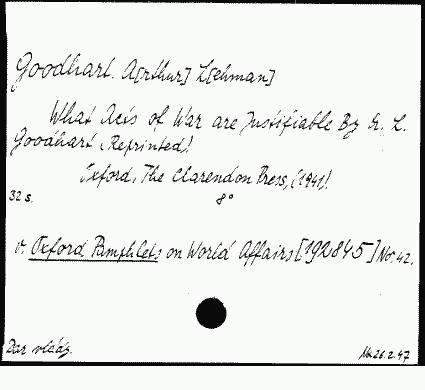 Goodhart. A[rthur] L[ehman]
What Acts of War are Justifiable By A. L.
Goodhart (Reprinted)
Oxford, The Clarendon Press, (1941).
32 s. 8°
v. Oxford Pamphlets on World Affairs [192845] No. 42.
Dar vlády.
26.2.47